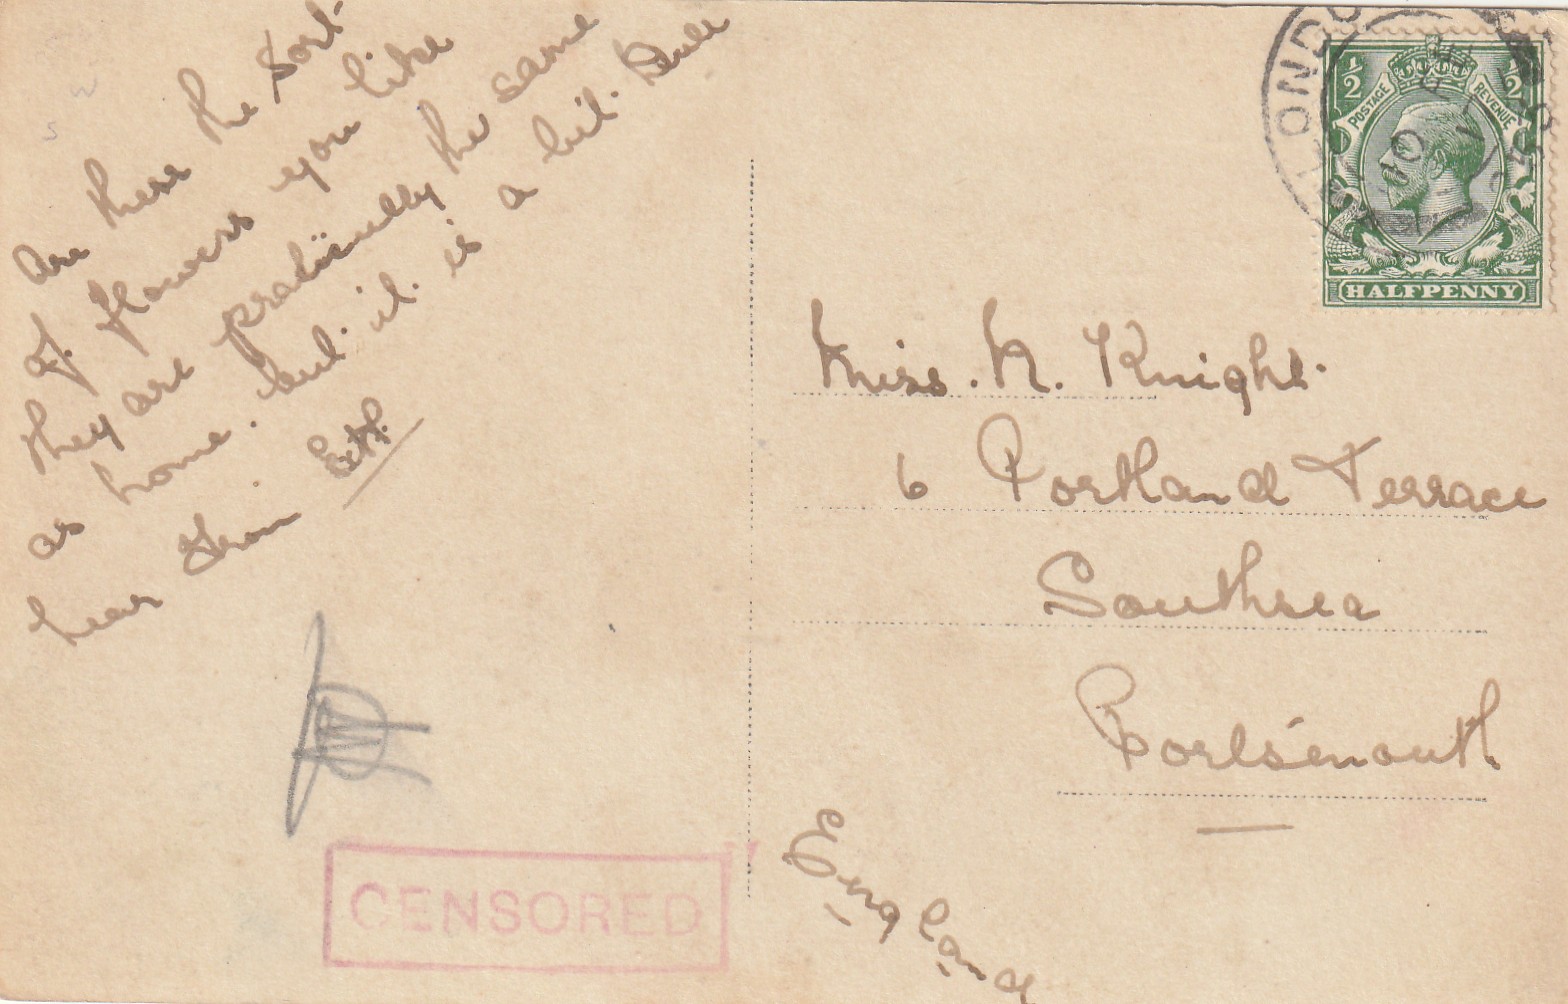 Are these the sort
of flowers you like
they are practically the same
as home. but it is a bit Dull
here from Eth.
CENSORED
LONDON
½ ½
POSTAGE REVENUE
HALFPENNY
Miss. N. Knight.
6 Portland Terrace
Southsea
Portsmouth
England